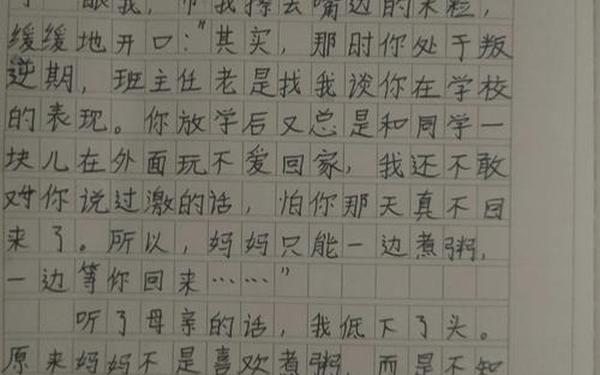 眼我，帮我擦去嘴边的米粒，
缓缓地开口：“其实，那时你处于叛
逆期，班主任老是找我谈你在学校
的表现。你放学后又总是和同学一
块儿在外面玩不爱回家，我还不敢
对你说过激的话，怕你那天真不回
来了。所以，妈妈只能一边煮粥，
一边等你回来……”
听了母亲的话，我低下了头。
原来妈妈不是喜欢煮粥，而是不知